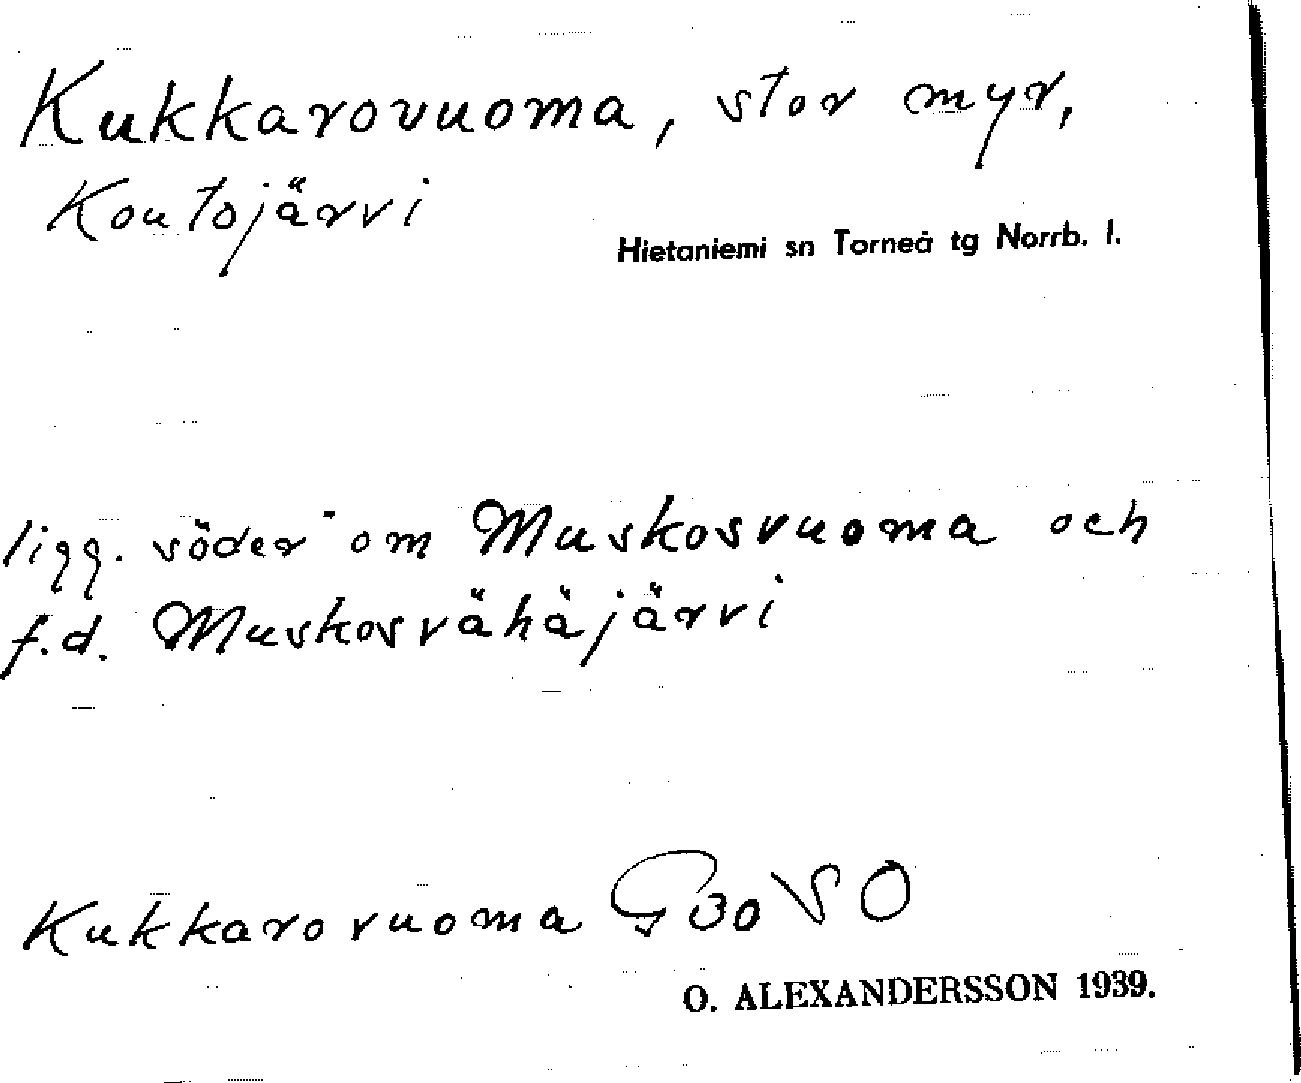 Kukkarovuoma, stor myr,
Koutojärvi
Hietaniemi sn Torneå tg Norrb. l.
ligg. söder om Muskosvuoma och
f.d. Muskosvähäjärvi
Kukkarovuoma G 30 SO
O. ALEXANDERSSON 1939.